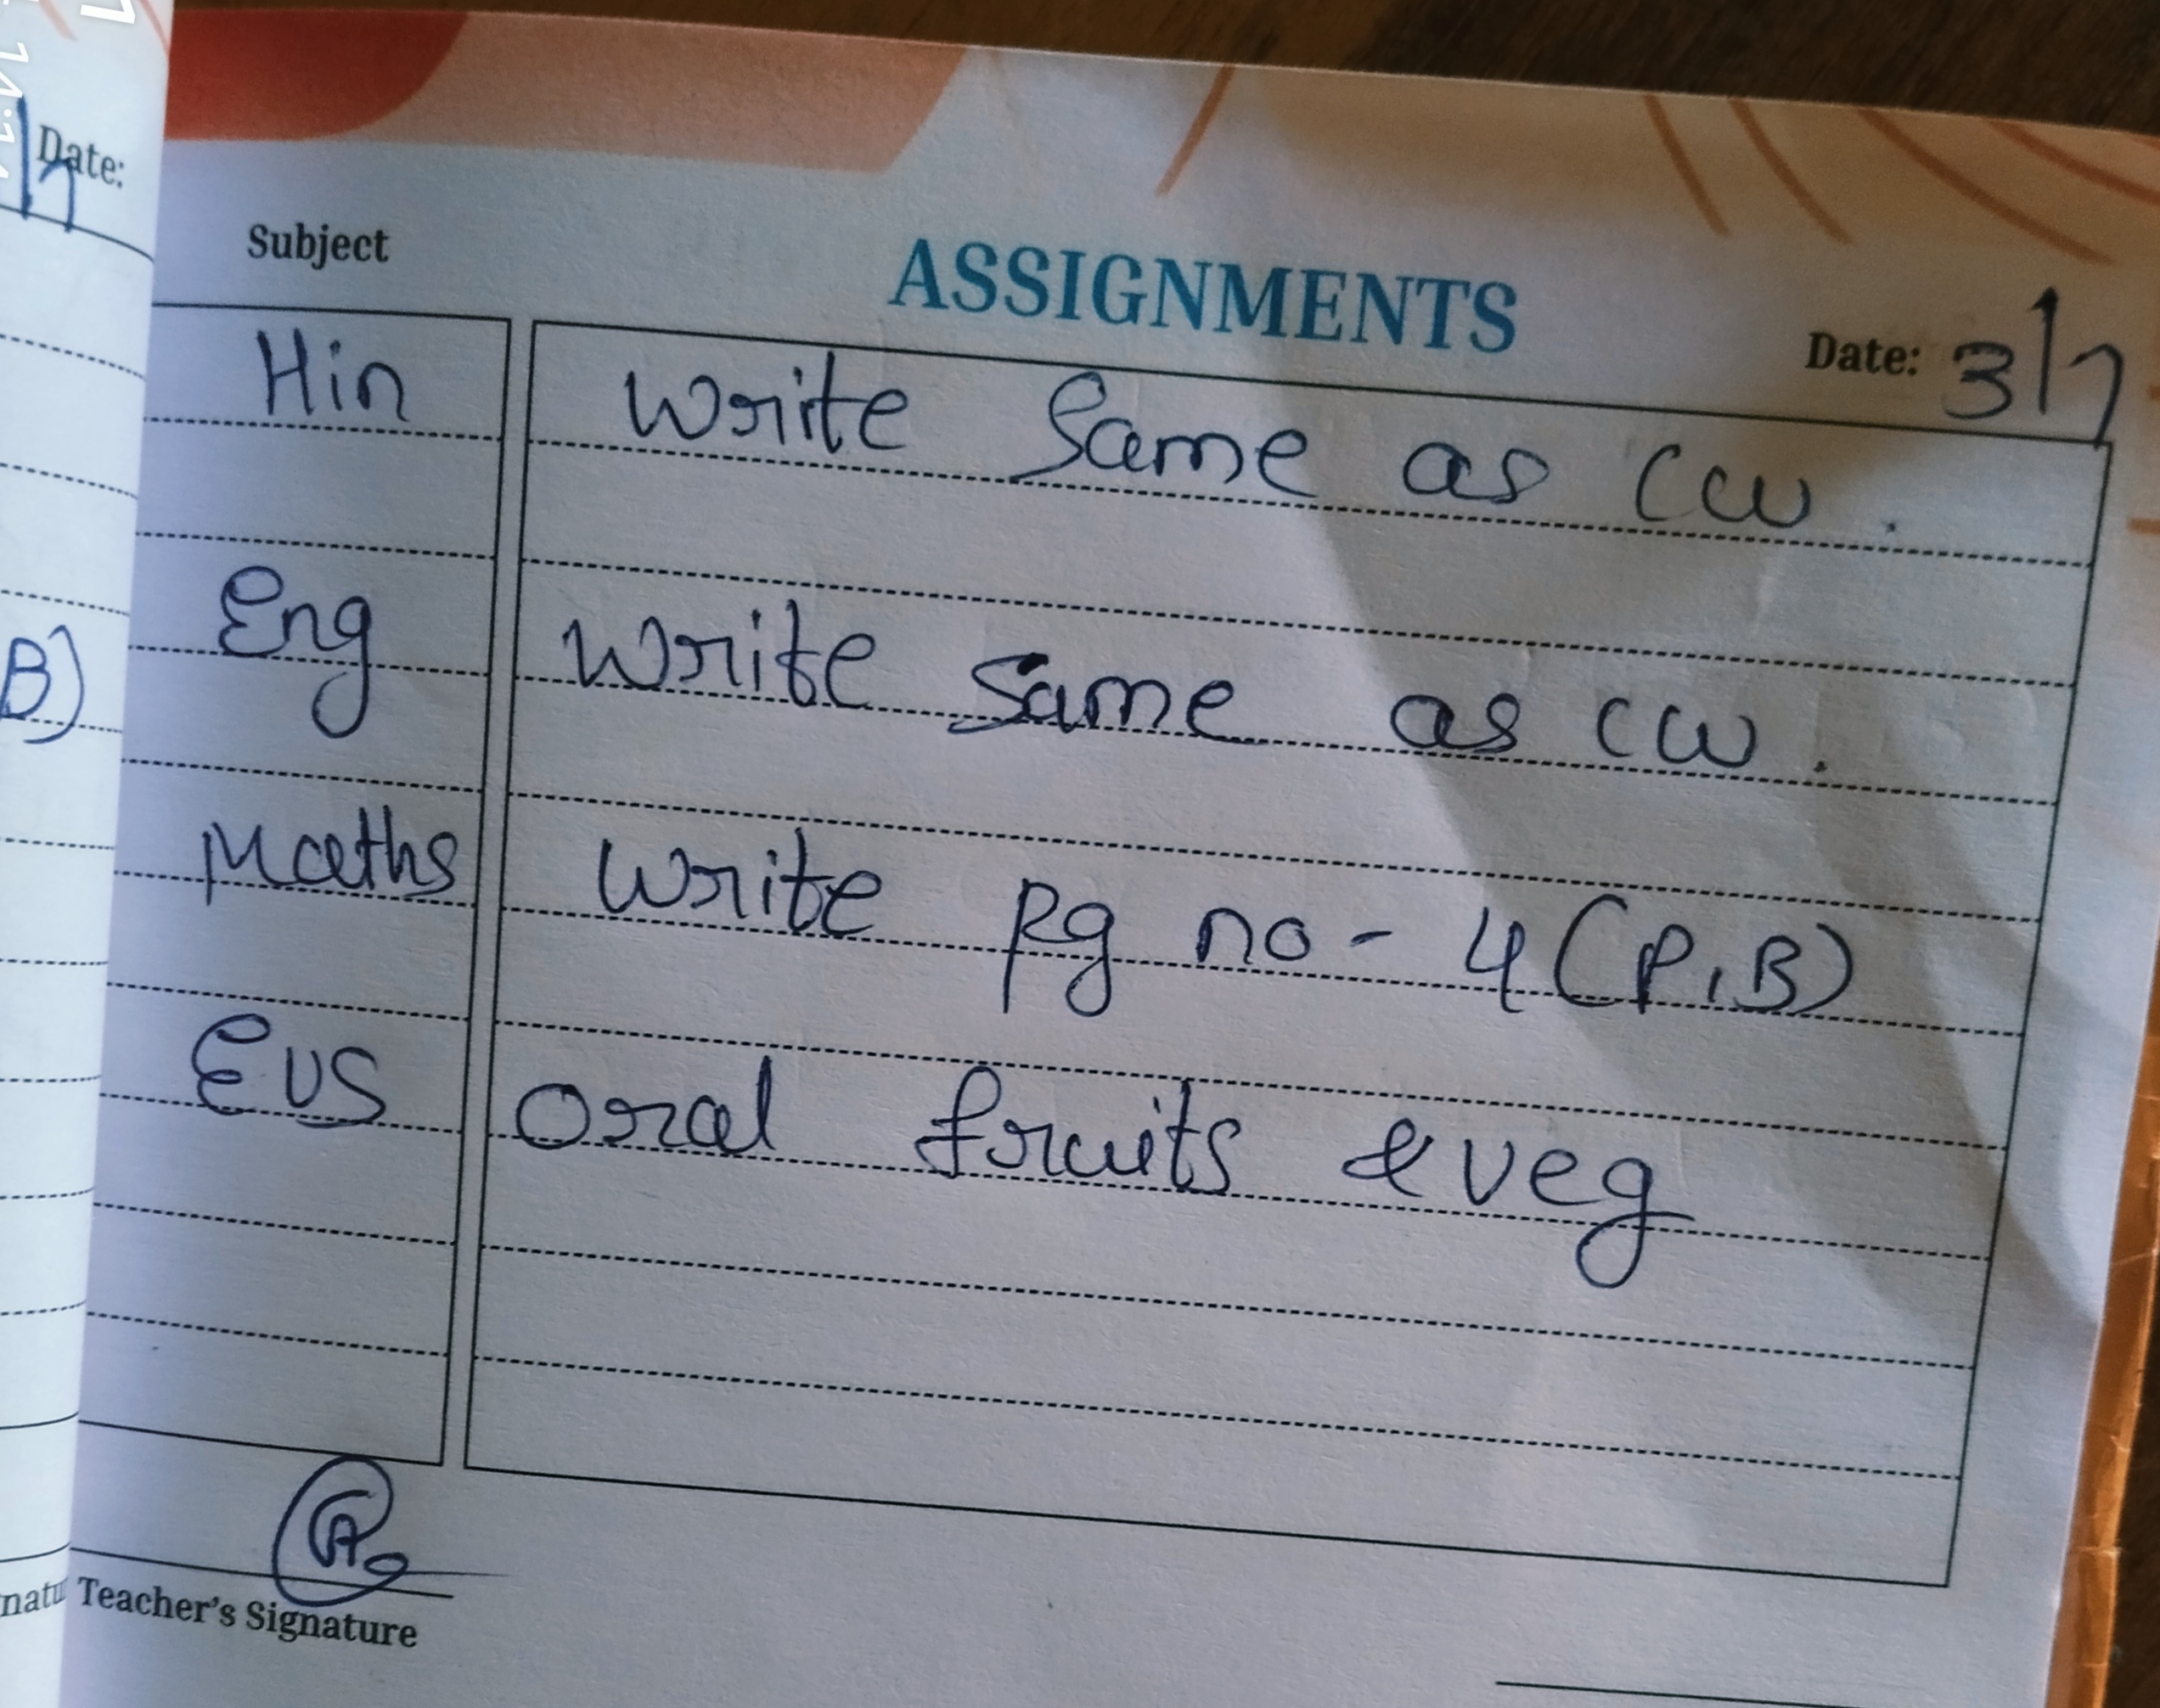 Date:
Subject
ASSIGNMENTS
Date: 3/7
Hin Write Same as CW.
Eng Write Same as CW.
Maths Write Pg no - 4 (P,B)
EVS Oral fruits & veg
B)
Teacher's Signature